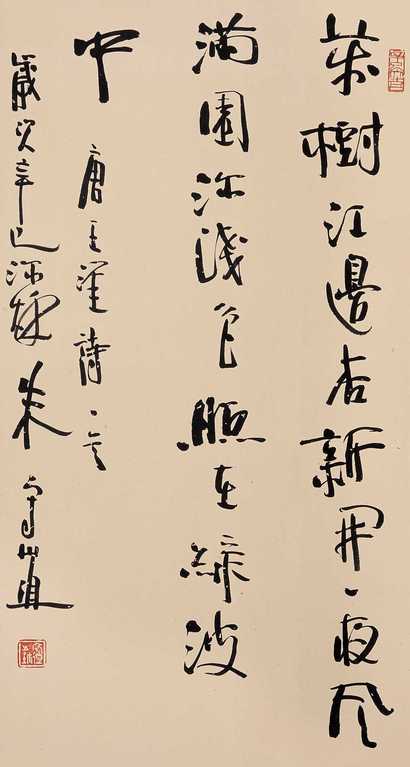 萬樹江邊杏新開一夜風
滿園深淺色照在綠波
中 唐王涯詩一首
歲次辛巳深秋朱守道